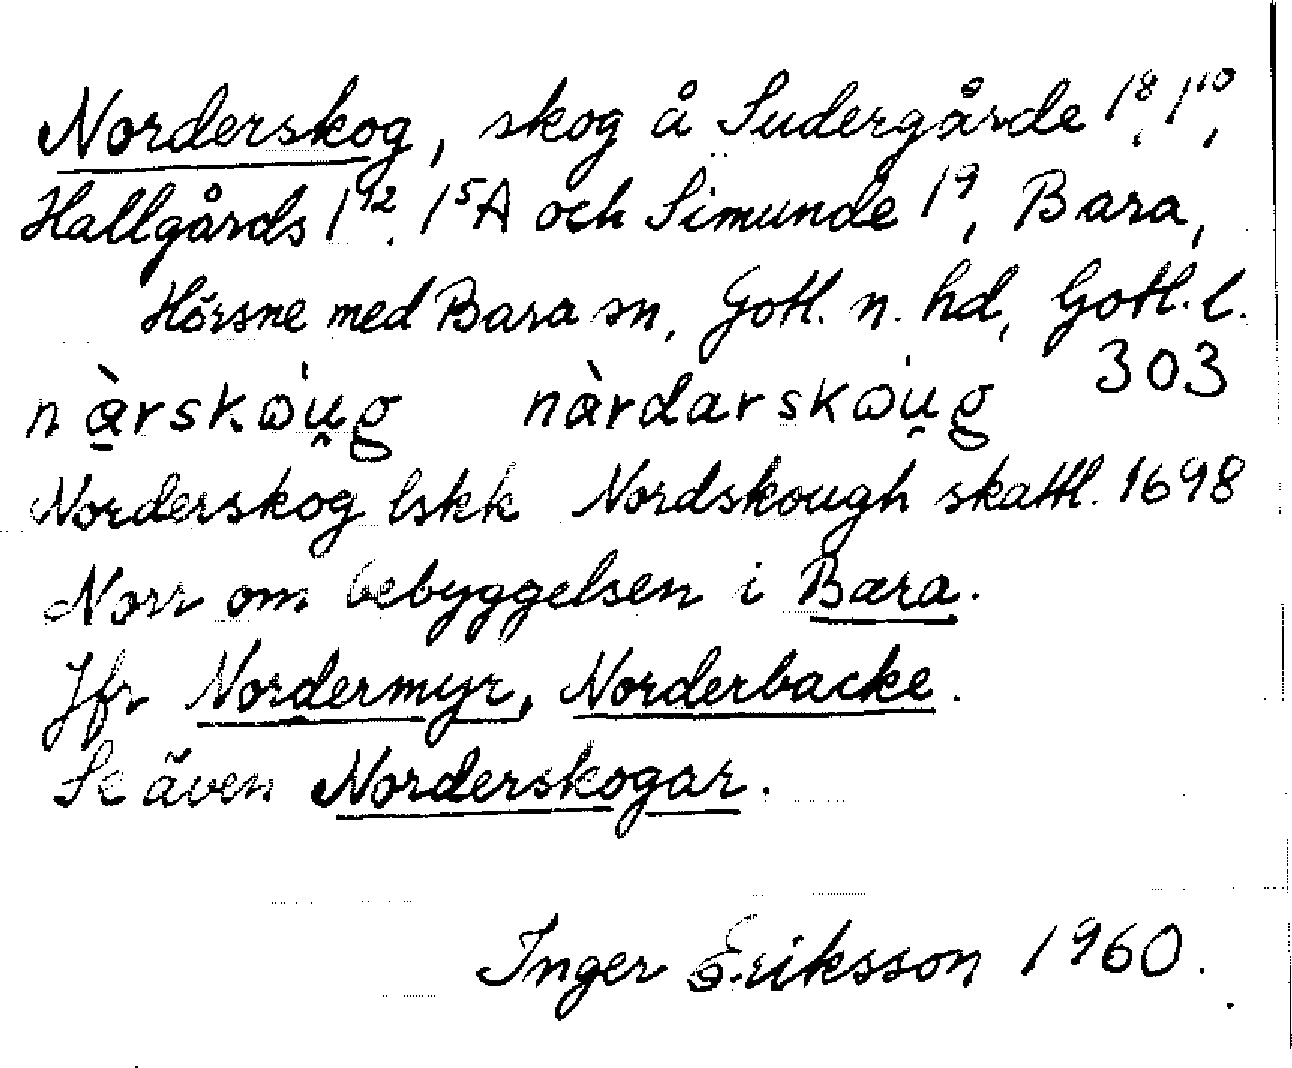 Norderskog, skog å Sudergårde 1⁸, 1¹⁰,
Hallgårds 1¹², 1⁵A och Simunde 1⁹, Bara,
Hörsne med Bara sn, Gotl. n. hd, Gotl. l.
303
nàrskòu̯g nàrdarskòu̯g
Norderskog lskk Nordskough skattl. 1698
Norr om bebyggelsen i Bara.
Jfr Nordermyr, Norderbacke.
Se även Norderskogar.
Inger Eriksson 1960.